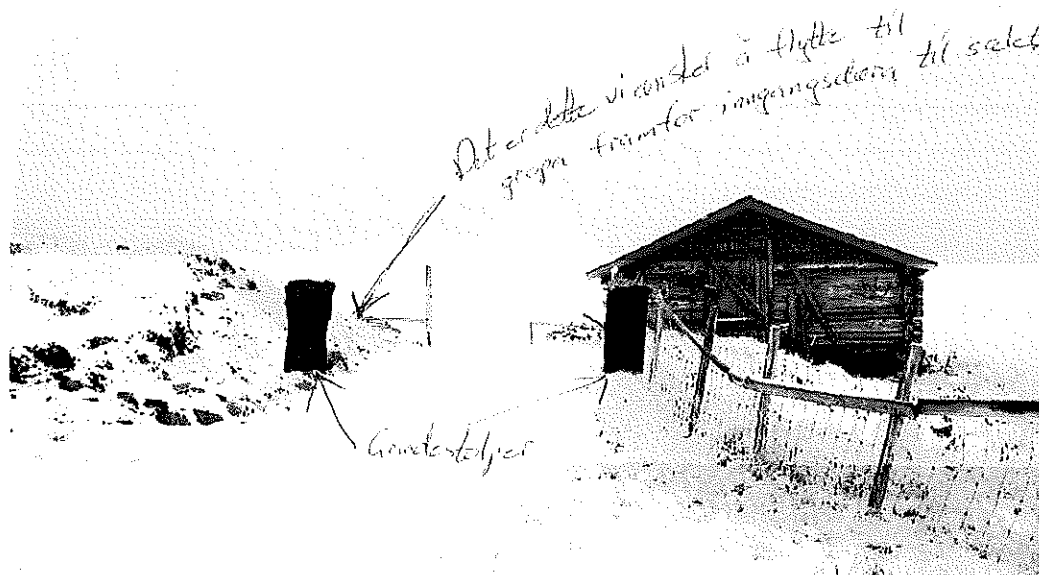 Det er dette vi ønsker å flytte til
gropa framfor inngangsdøra til selet
Grindstolper